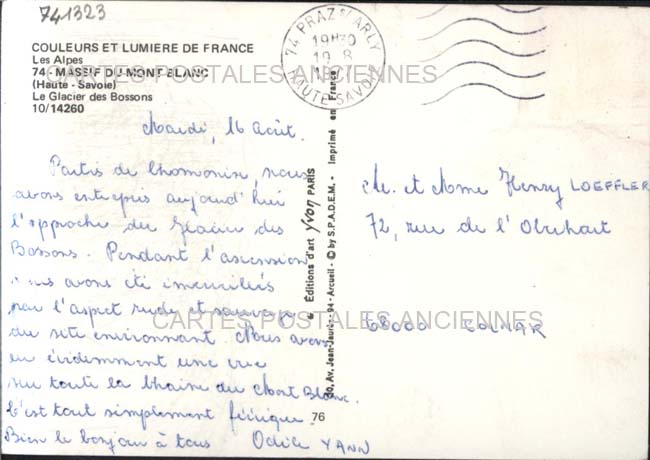 741323
COULEURS ET LUMIERE DE FRANCE
Les Alpes
74 - MASSIF DU MONT-BLANC
(Haute - Savoie)
Le Glacier des Bossons
10/14260
74 PRAZ S/ ARLY
19H30
19 8
HAUTE-SAVOIE
CARTES POSTALES ANCIENNES
Mardi, 16 Août.
Partis de Chamonix, nous
avons entrepris aujourd'hui
l'approche du Glacier des
Bossons. Pendant l'ascension
nous avons été émerveillés
par l'aspect rude et sauvage
du site environnant. Nous avons
eu évidemment une vue
sur toute la Chaîne du Mont Blanc.
C'est tout simplement féérique.
Bien le bonjour à tous Odile YANN
Editions d'art yvon PARIS
30, Av. Jean-Jaurès - 94 - Arcueil - © by S.P.A.D.E.M. - Imprimé en France
76
M. et Mme Henry LOEFFLER
72, rue de l'Oberhart
68000 COLMAR
CARTES POSTALES ANCIENNES